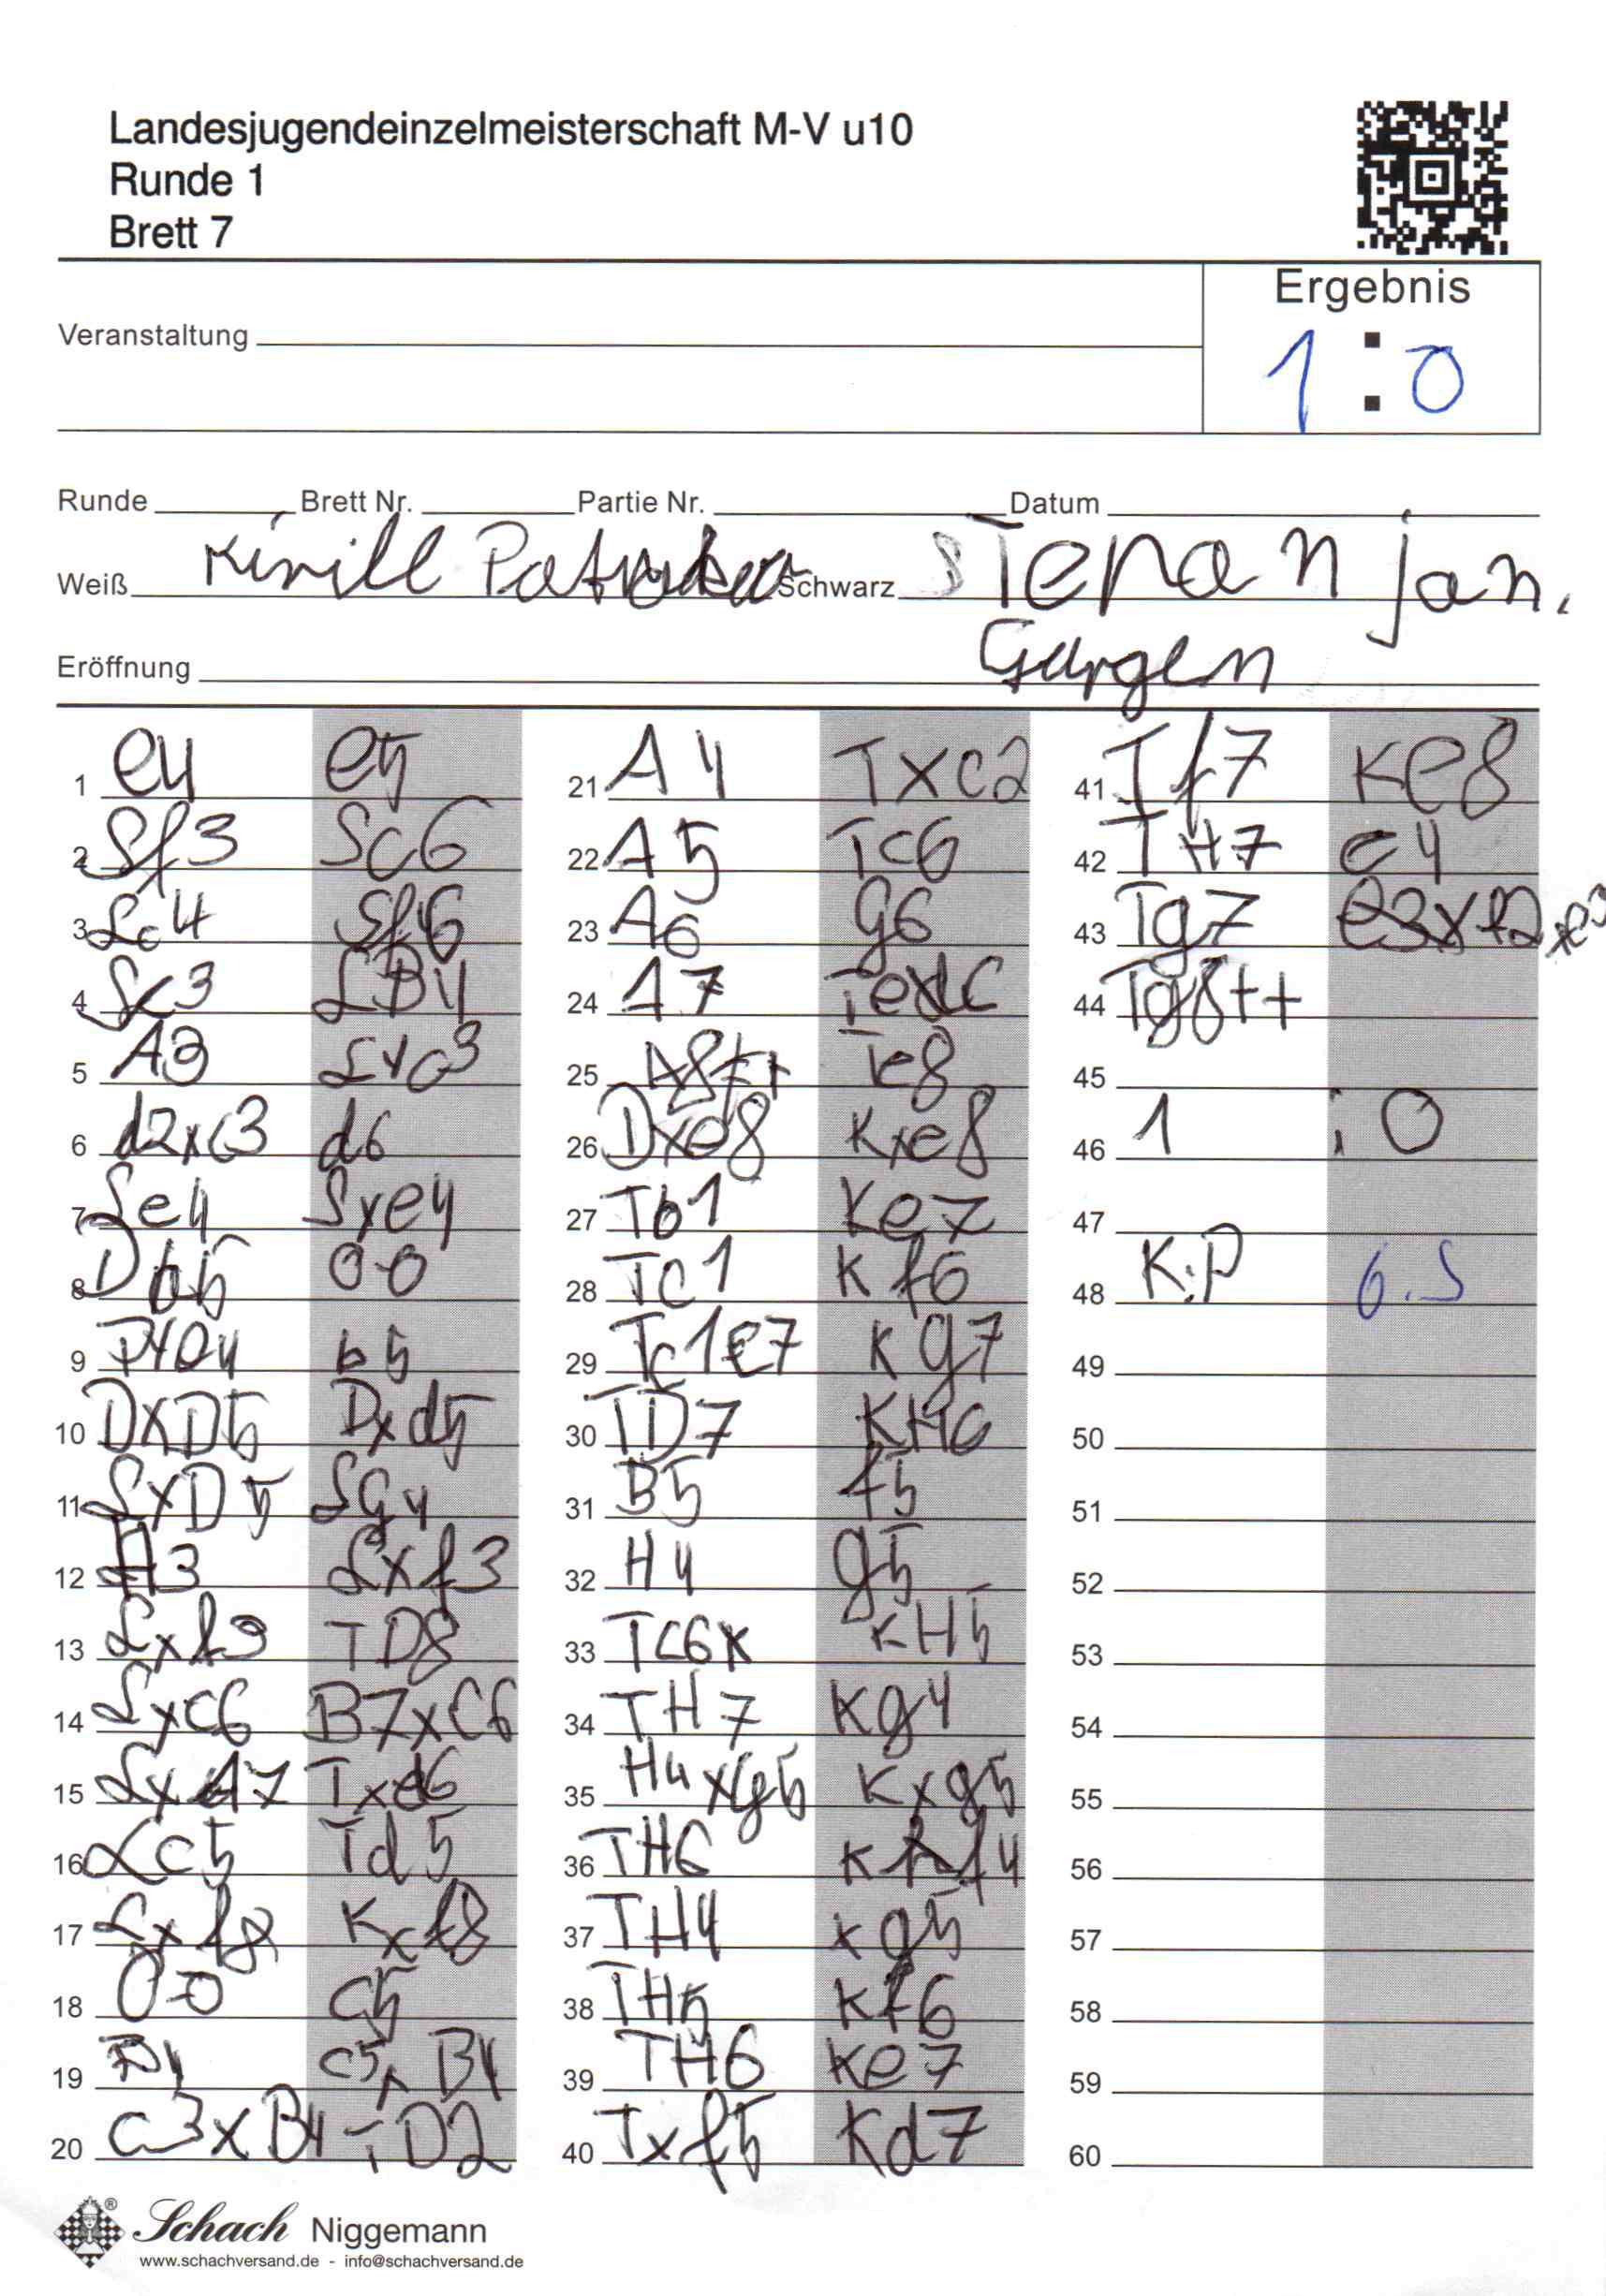 Landesjugendeinzelmeisterschaft M-V u10
Runde 1
Brett 7
Ergebnis
1 : 0
Veranstaltung
Runde Brett Nr. Partie Nr. Datum
Weiß Kirill Schwarz STepanjan.
Eröffnung Gurgen
1 e4 e5
2 Sf3 Sc6
3 Lc4 Sf6
4 Sc3 LB4
5 A3 Lxc3
6 d2xc3 d6
7 Se4 Sxe4
8 0-0
9 b5
10 DxD5 Dxd5
11 LxD5 LG4
12 H3 Lxf3
13 Lxf3 TD8
14 Lxc6 B7xC6
15 LxA7 Txd6
16 Lc5 Td5
17 Lxf8 Kxf8
18 0-0 c5
19 B4 c5xB4
20 c3xB4 TD2
21 A4 Txc2
22 A5 Tc6
23 A6 g6
24 A7
25 A8++ Te8
26 Dxe8 Kxe8
27 Tb1 Ke7
28 Tc1 Kf6
29 Tc1e7 Kg7
30 TD7 KH6
31 B5 f5
32 H4 g5
33 Tc6x KH5
34 TH7 Kg4
35 H4xg5 Kxg5
36 TH6 Kf4
37 TH4 Kg5
38 TH5 Kf6
39 TH6 Ke7
40 Txf5 Kd7
41 Tf7 Ke8
42 TH7 e4
43 Tg7 e3xf2xe3
44 Tg8++
45
46 1 : 0
47
48 K.P G.S
49
50
51
52
53
54
55
56
57
58
59
60
Schach Niggemann
www.schachversand.de - info@schachversand.de